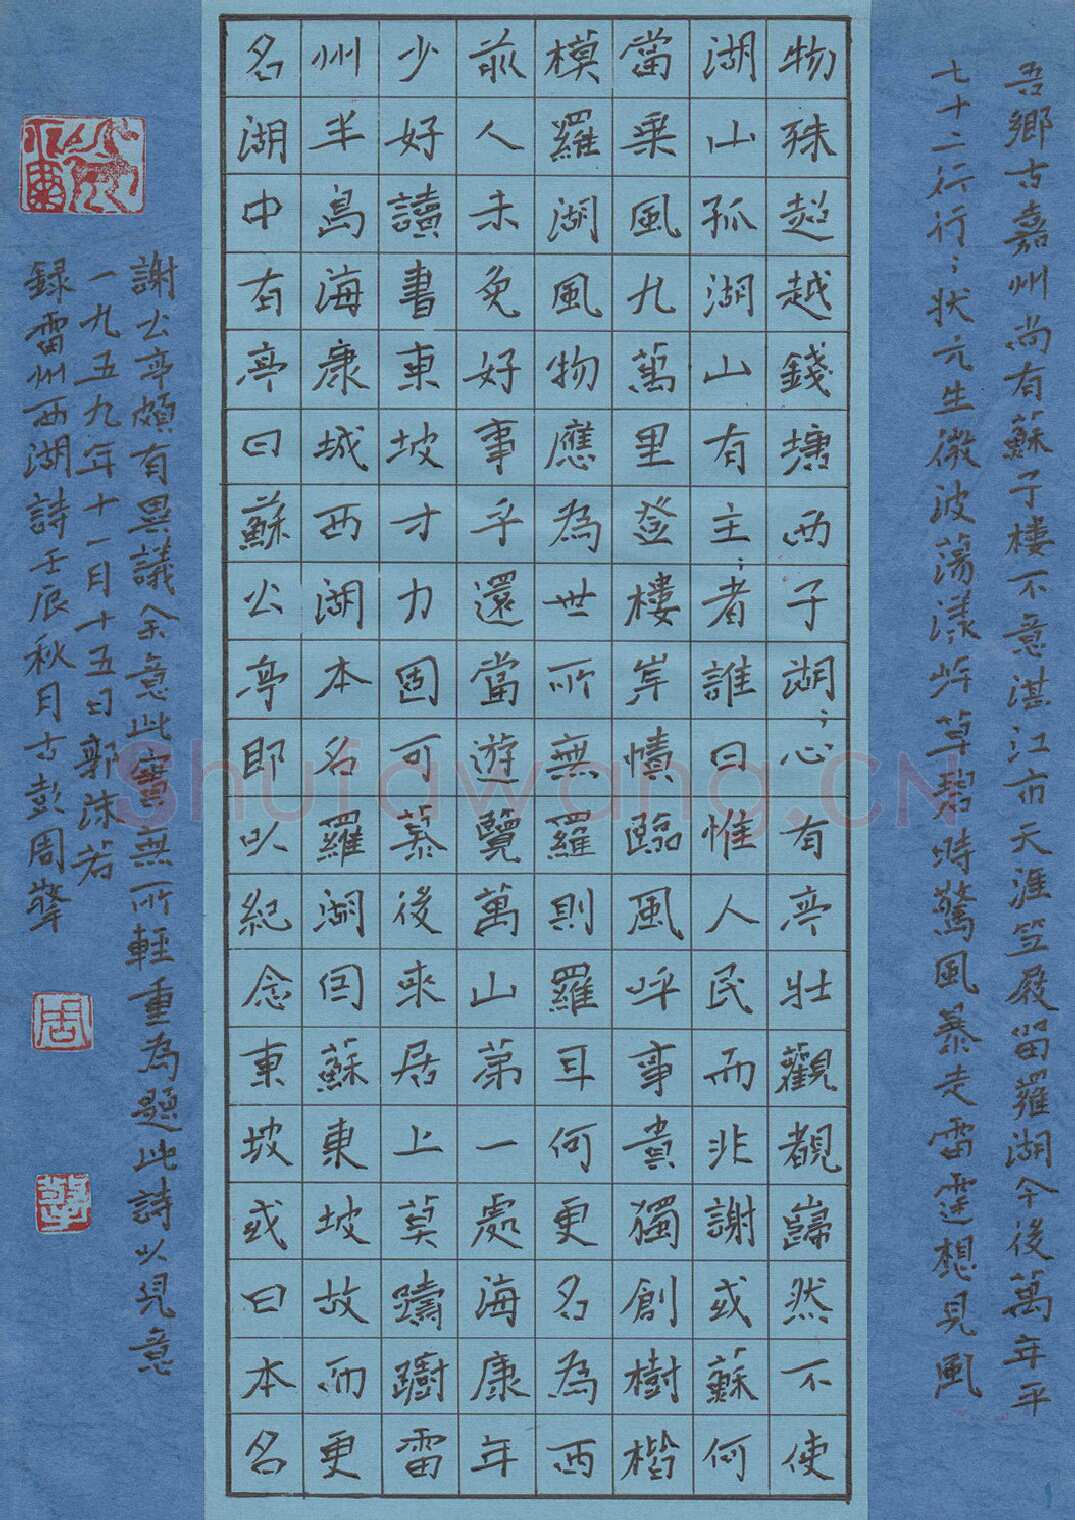 吾鄉古嘉州尚有蘇子樓不意湛江市天涯笠屐留羅湖今後萬年平
七十二行行〻狀元生微波蕩漾岸草碧時驚風暴走雷霆想見風
物殊超越錢塘西子湖〻心有亭壯觀覩巋然不使
湖山孤湖山有主〻者誰曰惟人民而非謝或蘇何
當乘風九萬里登樓岸幘臨風呼事貴獨創樹楷
模羅湖風物應為世所無羅則羅耳何更名為西
前人未免好事乎還當遊覽萬山第一處海康年
少好讀書東坡才力固可慕後來居上莫躊躕雷
州半島海康城西湖本名羅湖因蘇東坡故而更
名湖中有亭曰蘇公亭即以紀念東坡或曰本名
謝公亭頗有異議余意此實無所輕重為題此詩以見意
一九五九年十一月十五日郭沫若
錄雷州西湖詩壬辰秋月古彭周擎
周
擎
Shufawang.CN